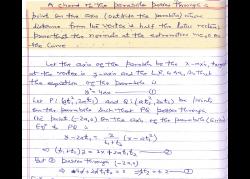 A chord of the parabola passes through a
point on the axis (outside the parabola) whose
distance from the vertex is half the latus rectum;
prove that the normals at the extremities meet on
the curve.
Let the axis of the parabola be the x-axis,
at the vertex is y-axis and the L.R. 4a,
the equation of the parabola is
y² = 4ax
Let P(at₁², 2at₁) and Q(at₂², 2at₂) be points
on the parabola such that PQ passes through
the point (-2a, 0) on the axis of the parabola
Eqn of PQ is
y - 2at₁ = 2/(t₁+t₂) (x - at₁²)
⇒ (t₁+t₂) y = 2x + 2at₁t₂
But passes through (-2a, 0)